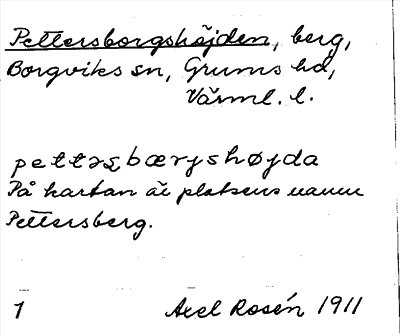 Pettersborgshöjden, berg,
Borgviks sn, Grums hd,
Värml. l.
pettəʂbærjshøjda
På kartan är platsens namn
Pettersberg.
1 Axel Rosén 1911